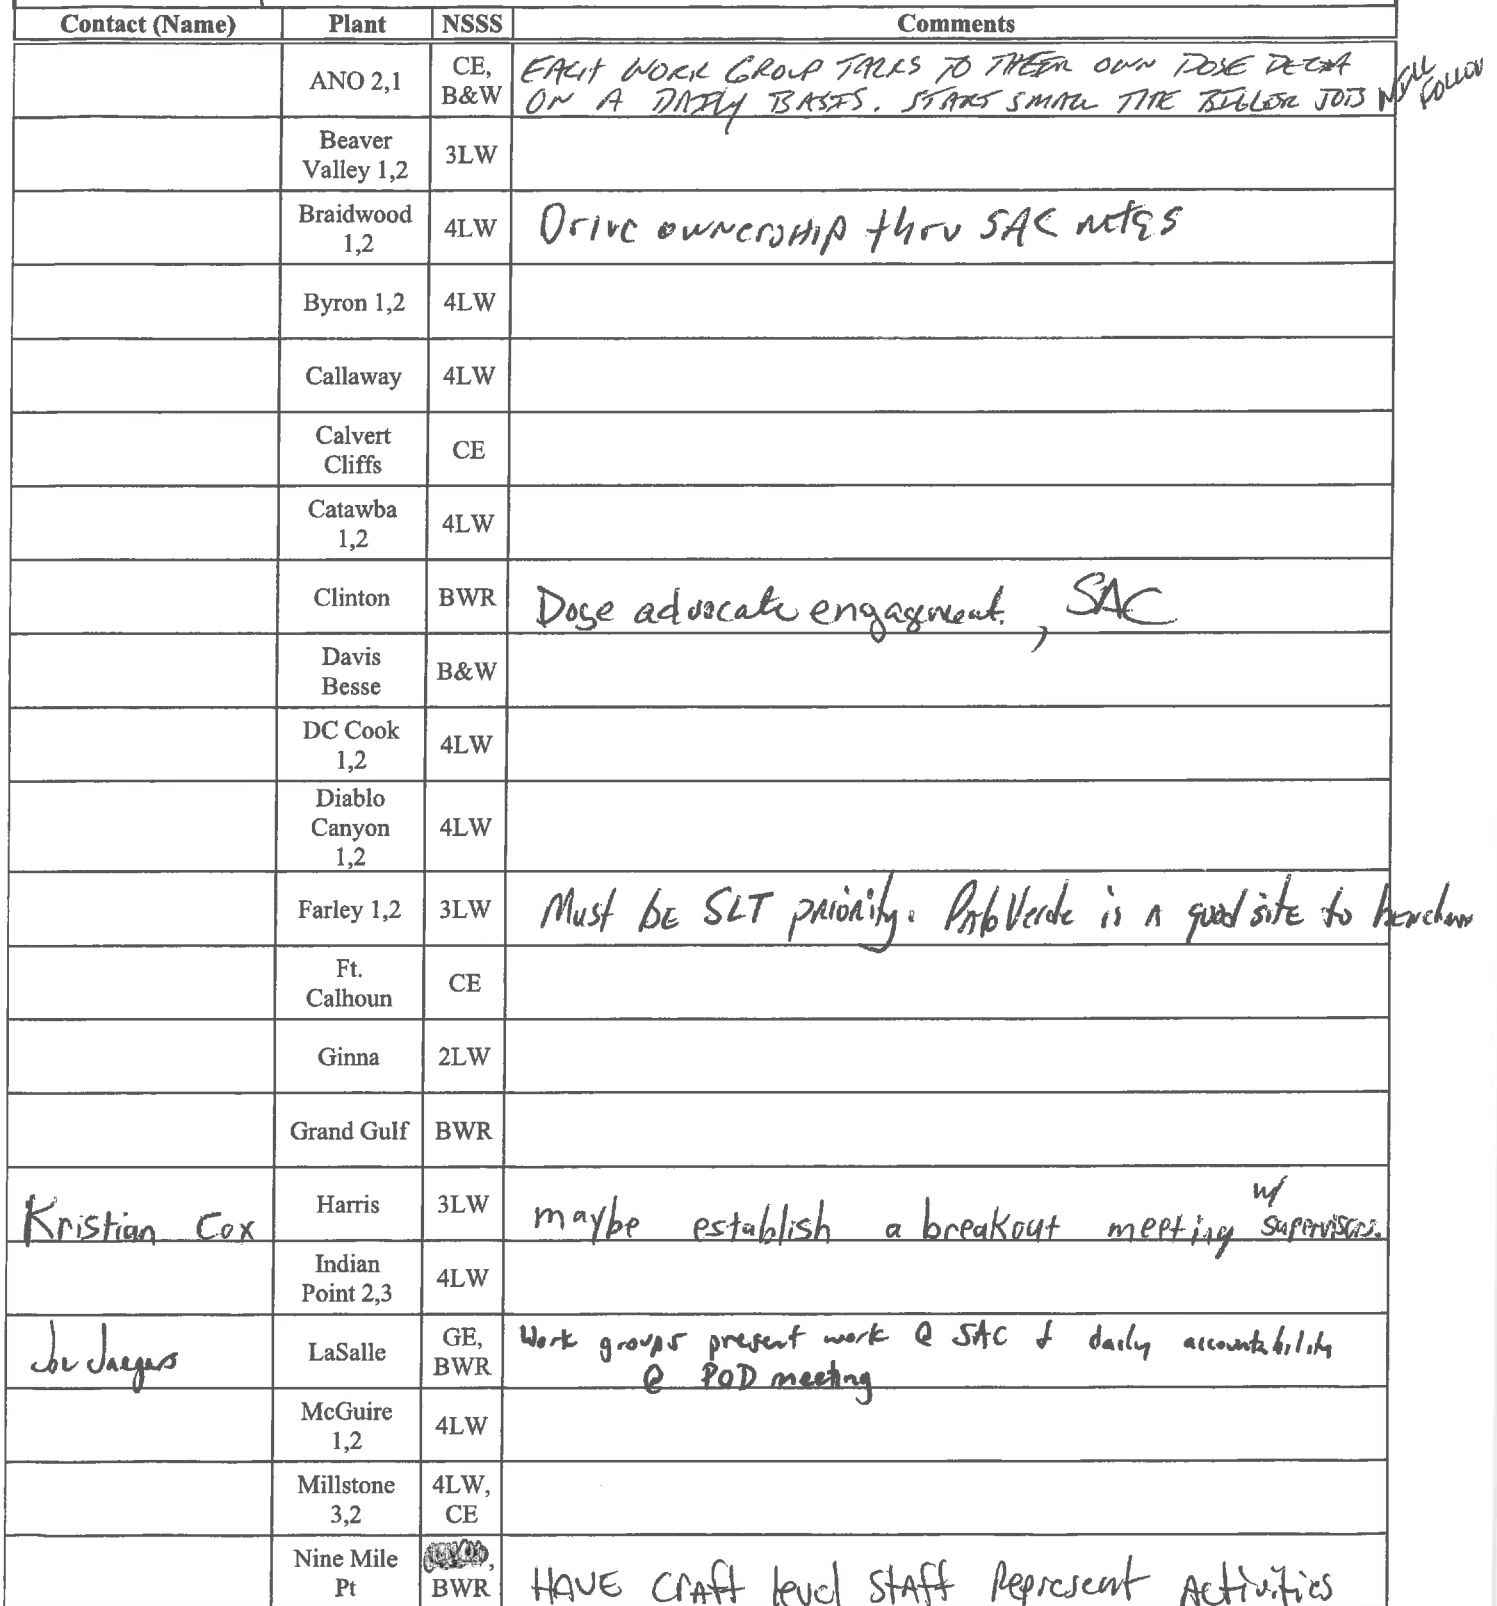 Contact (Name) Plant NSSS Comments
ANO 2,1 CE, B&W EACH WORK GROUP TALKS TO THEIR OWN DOSE
ON A DAILY BASIS. START SMALL THE BIGGER JOB WILL FOLLOW
Beaver Valley 1,2 3LW
Braidwood 1,2 4LW Drive ownership thru SAC mtgs
Byron 1,2 4LW
Callaway 4LW
Calvert Cliffs CE
Catawba 1,2 4LW
Clinton BWR Dose advocate engagement. , SAC
Davis Besse B&W
DC Cook 1,2 4LW
Diablo Canyon 1,2 4LW
Farley 1,2 3LW Must be SLT priority. Palo Verde is a good site to
Ft. Calhoun CE
Ginna 2LW
Grand Gulf BWR
Kristian Cox Harris 3LW maybe establish a breakout meeting w/ supervisors.
Indian Point 2,3 4LW
Joe Jaegers LaSalle GE, BWR Work groups present work @ SAC & daily accountability
@ POD meeting
McGuire 1,2 4LW
Millstone 3,2 4LW, CE
Nine Mile Pt , BWR HAVE craft level staff Represent Activities